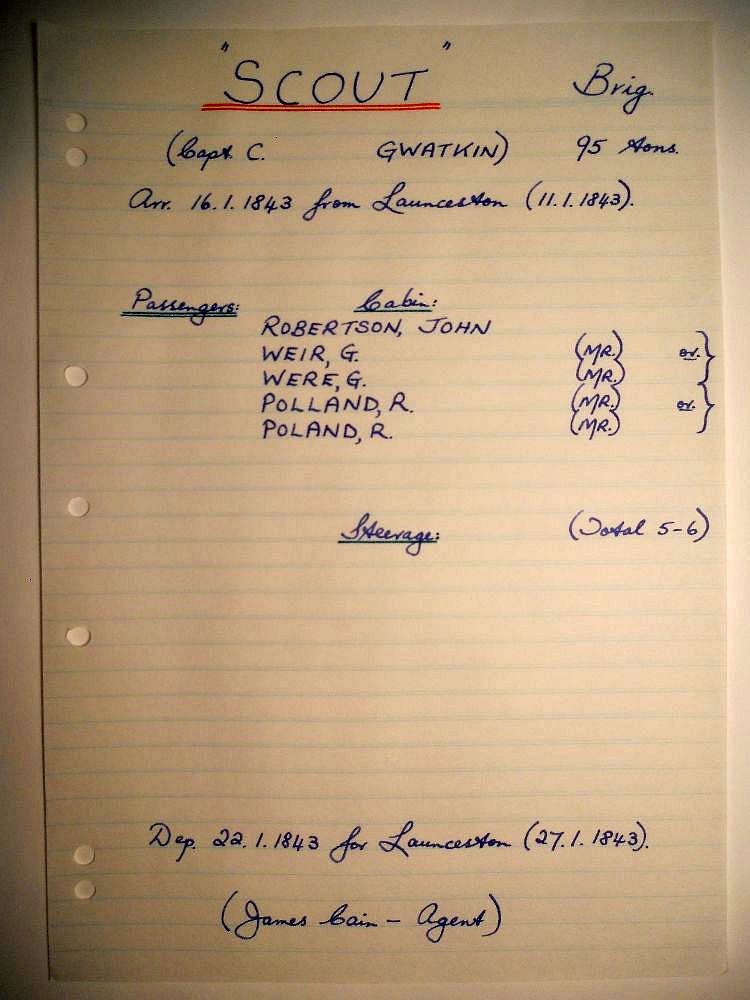 "SCOUT" Brig.
(Capt. C. GWATKIN) 95 tons.
Arr. 16.1.1843 from Launceston (11.1.1843).
Passengers: Cabin:
ROBERTSON, JOHN
WEIR, G. (MR.) or. }
WERE, G. (MR.)
POLLAND, R. (MR.) or. }
POLAND, R. (MR.)
Steerage: (Total 5-6)
Dep. 22.1.1843 for Launceston (27.1.1843).
(James Cain - Agent)